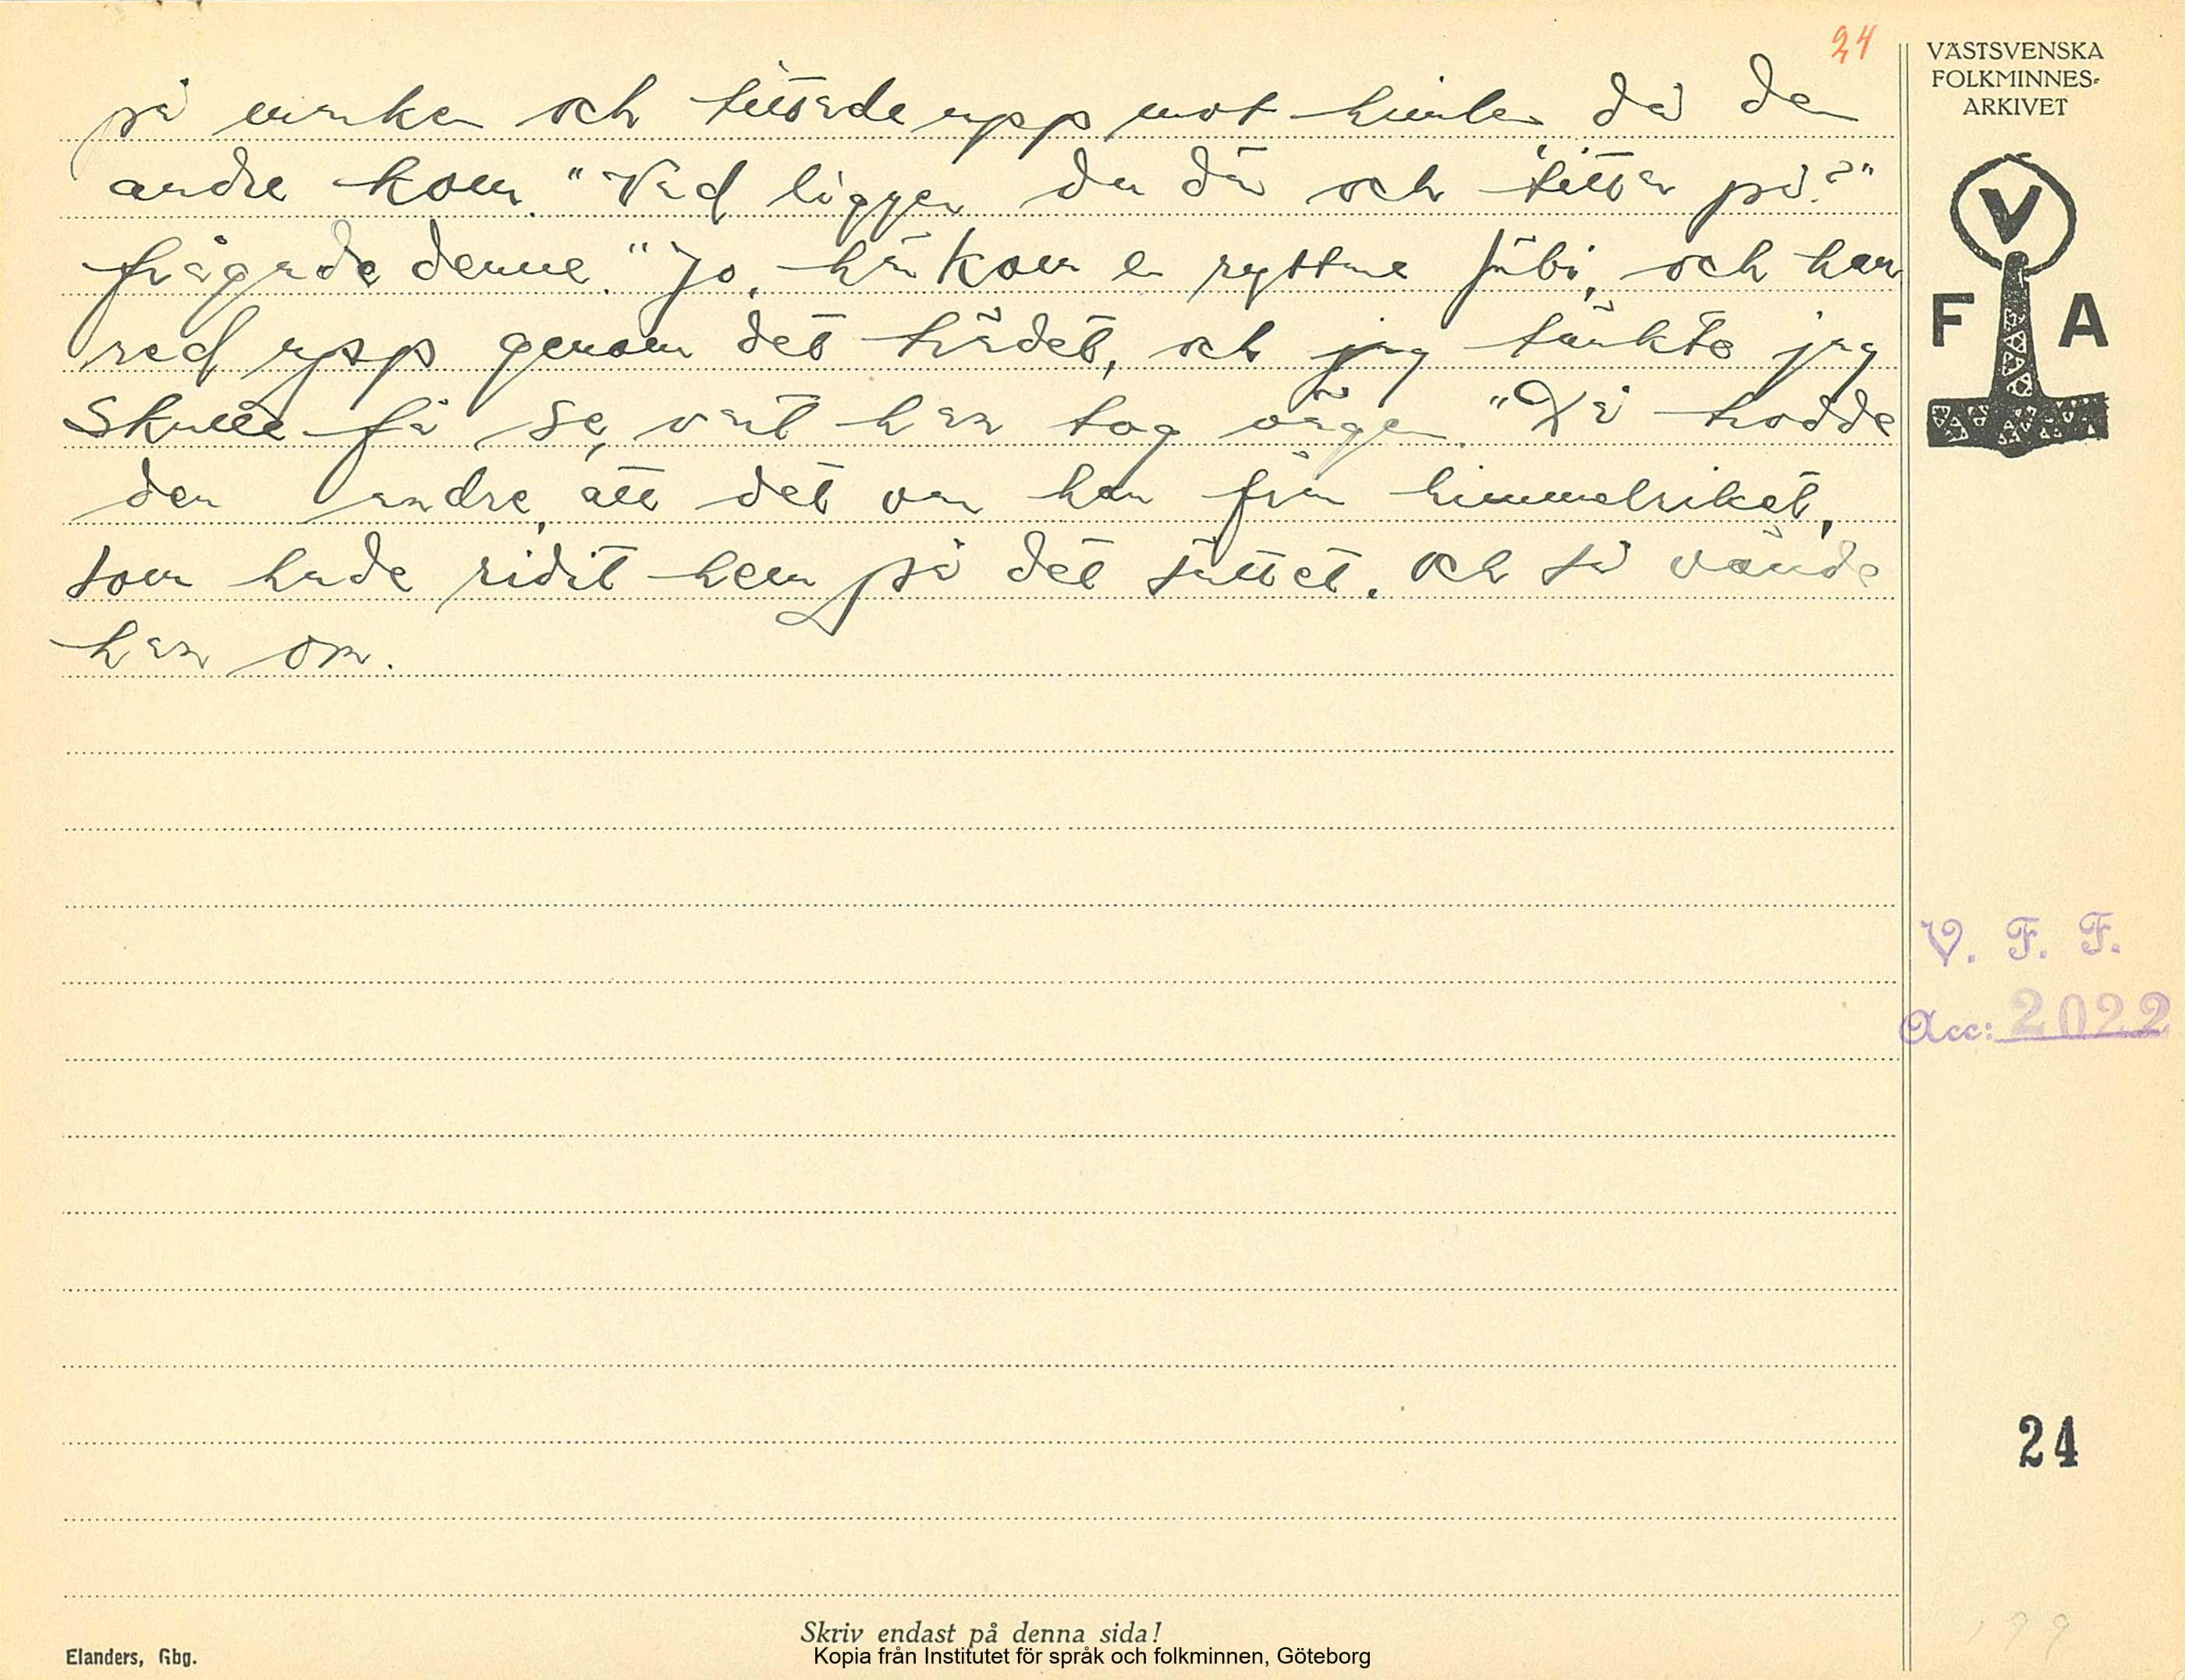 24
på marken och tittade upp mot himlen, då den
andre kom. "Vad ligger du där och tittar på?"
frågade denne. "Jo, här kom en ryttare förbi, och han
red upp genom det trädet, och jag tänkte jag
skulle få se, vart han tog vägen." Då trodde
den andre, att det var han från himmelriket,
som hade ridit hem på det sättet. Och så vände
han om.
VÄSTSVENSKA
FOLKMINNES-
ARKIVET
V
F A
V. F. F.
Acc: 2022
24
199
Skriv endast på denna sida!
Elanders, Gbg.
Kopia från Institutet för språk och folkminnen, Göteborg